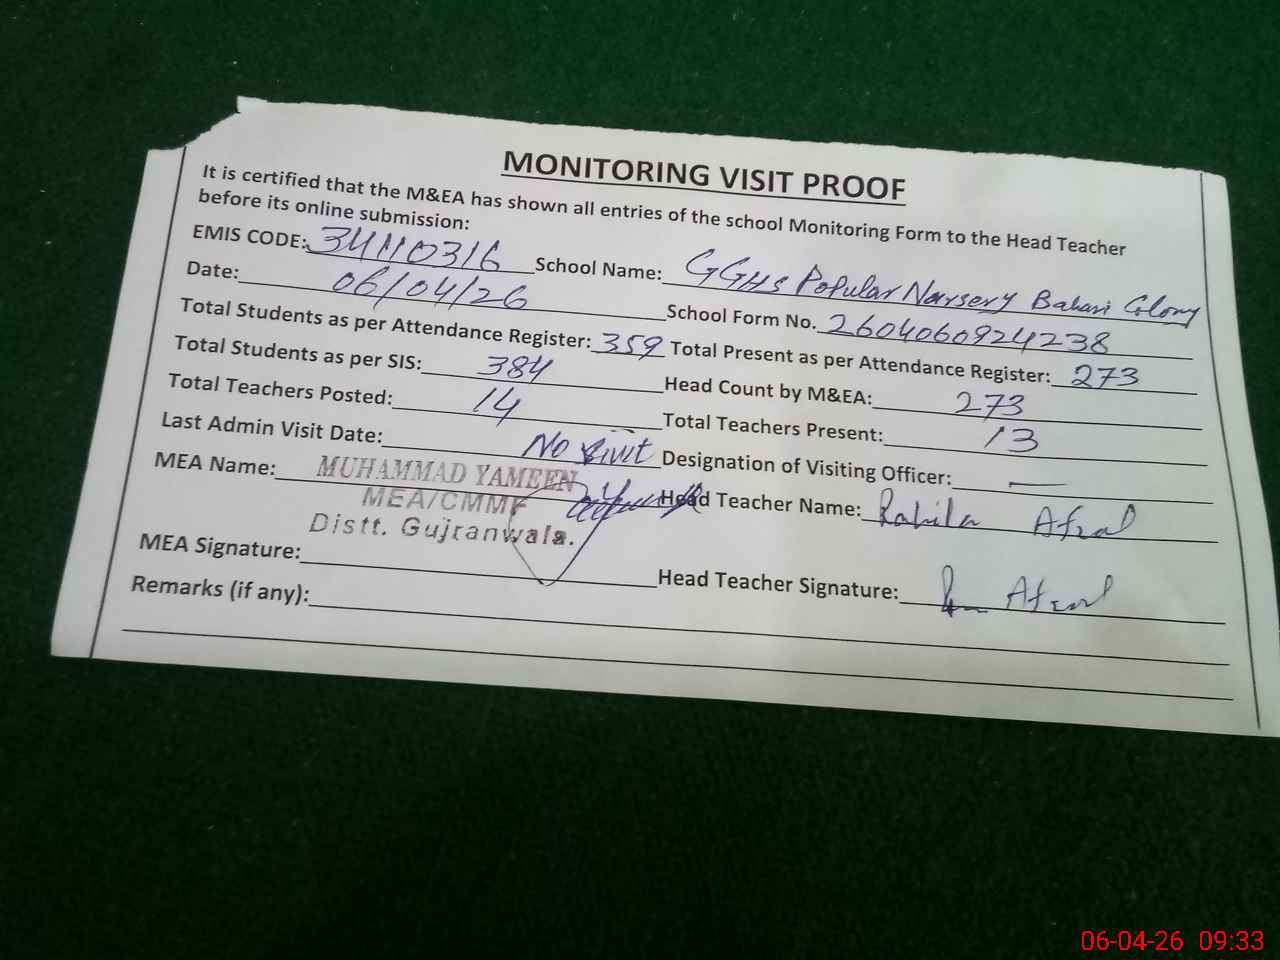 MONITORING VISIT PROOF
It is certified that the M&EA has shown all entries of the school Monitoring Form to the Head Teacher
before its online submission:
EMIS CODE: 34110316 School Name: GGHS Popular Narsery Bahari Colony
Date: 06/04/26 School Form No. 2604060924238
Total Students as per Attendance Register: 359 Total Present as per Attendance Register: 273
Total Students as per SIS: 384 Head Count by M&EA: 273
Total Teachers Posted: 14 Total Teachers Present: 13
Last Admin Visit Date: No Designation of Visiting Officer: —
MEA Name: MUHAMMAD YAMEEN Head Teacher Name: Rahila Afzal
MEA/CMMF
Distt. Gujranwala.
MEA Signature: Head Teacher Signature: Afzal
Remarks (if any):
06-04-26 09:33